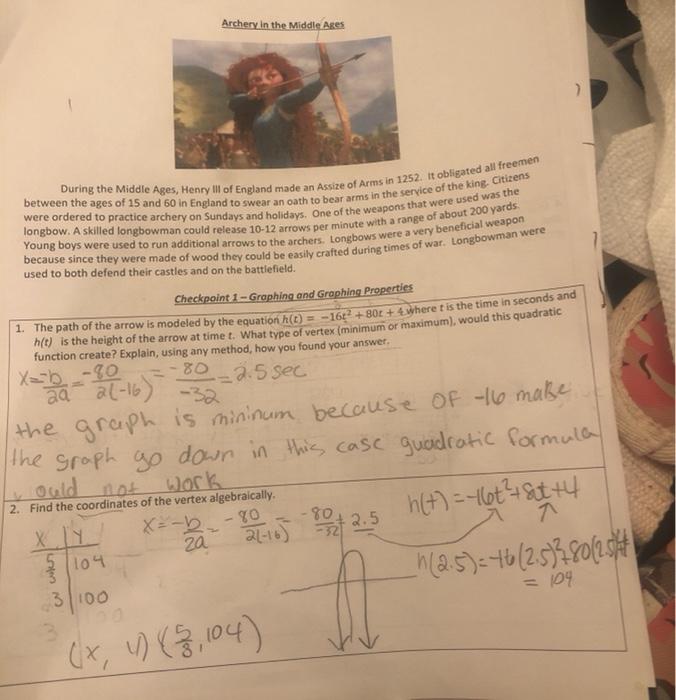 Archery in the Middle Ages
During the Middle Ages, Henry III of England made an Assize of Arms in 1252. It obligated all freemen
between the ages of 15 and 60 in England to swear an oath to bear arms in the service of the king. Citizens
were ordered to practice archery on Sundays and holidays. One of the weapons that were used was the
longbow. A skilled longbowman could release 10-12 arrows per minute with a range of about 200 yards.
Young boys were used to run additional arrows to the archers. Longbows were a very beneficial weapon
because since they were made of wood they could be easily crafted during times of war. Longbowman were
used to both defend their castles and on the battlefield.
Checkpoint 1 – Graphing and Graphing Properties
1. The path of the arrow is modeled by the equation h(t) = −16t² + 80t + 4 where t is the time in seconds and
h(t) is the height of the arrow at time t. What type of vertex (minimum or maximum), would this quadratic
function create? Explain, using any method, how you found your answer.
X=-b/2a = -80/2(-16) = -80/-32 = 2.5 sec
the graph is mininum because OF -16 make
the graph go down in this case quadratic formula
would not work
2. Find the coordinates of the vertex algebraically.
X=-b/2a = -80/2(-16) = -80/-32 = 2.5
h(t)=-16t²+80t+4
X Y
5/3 104
3 100
h(2.5)=-16(2.5)²+80(2.5)+4
= 104
(x, y) (5/3, 104)